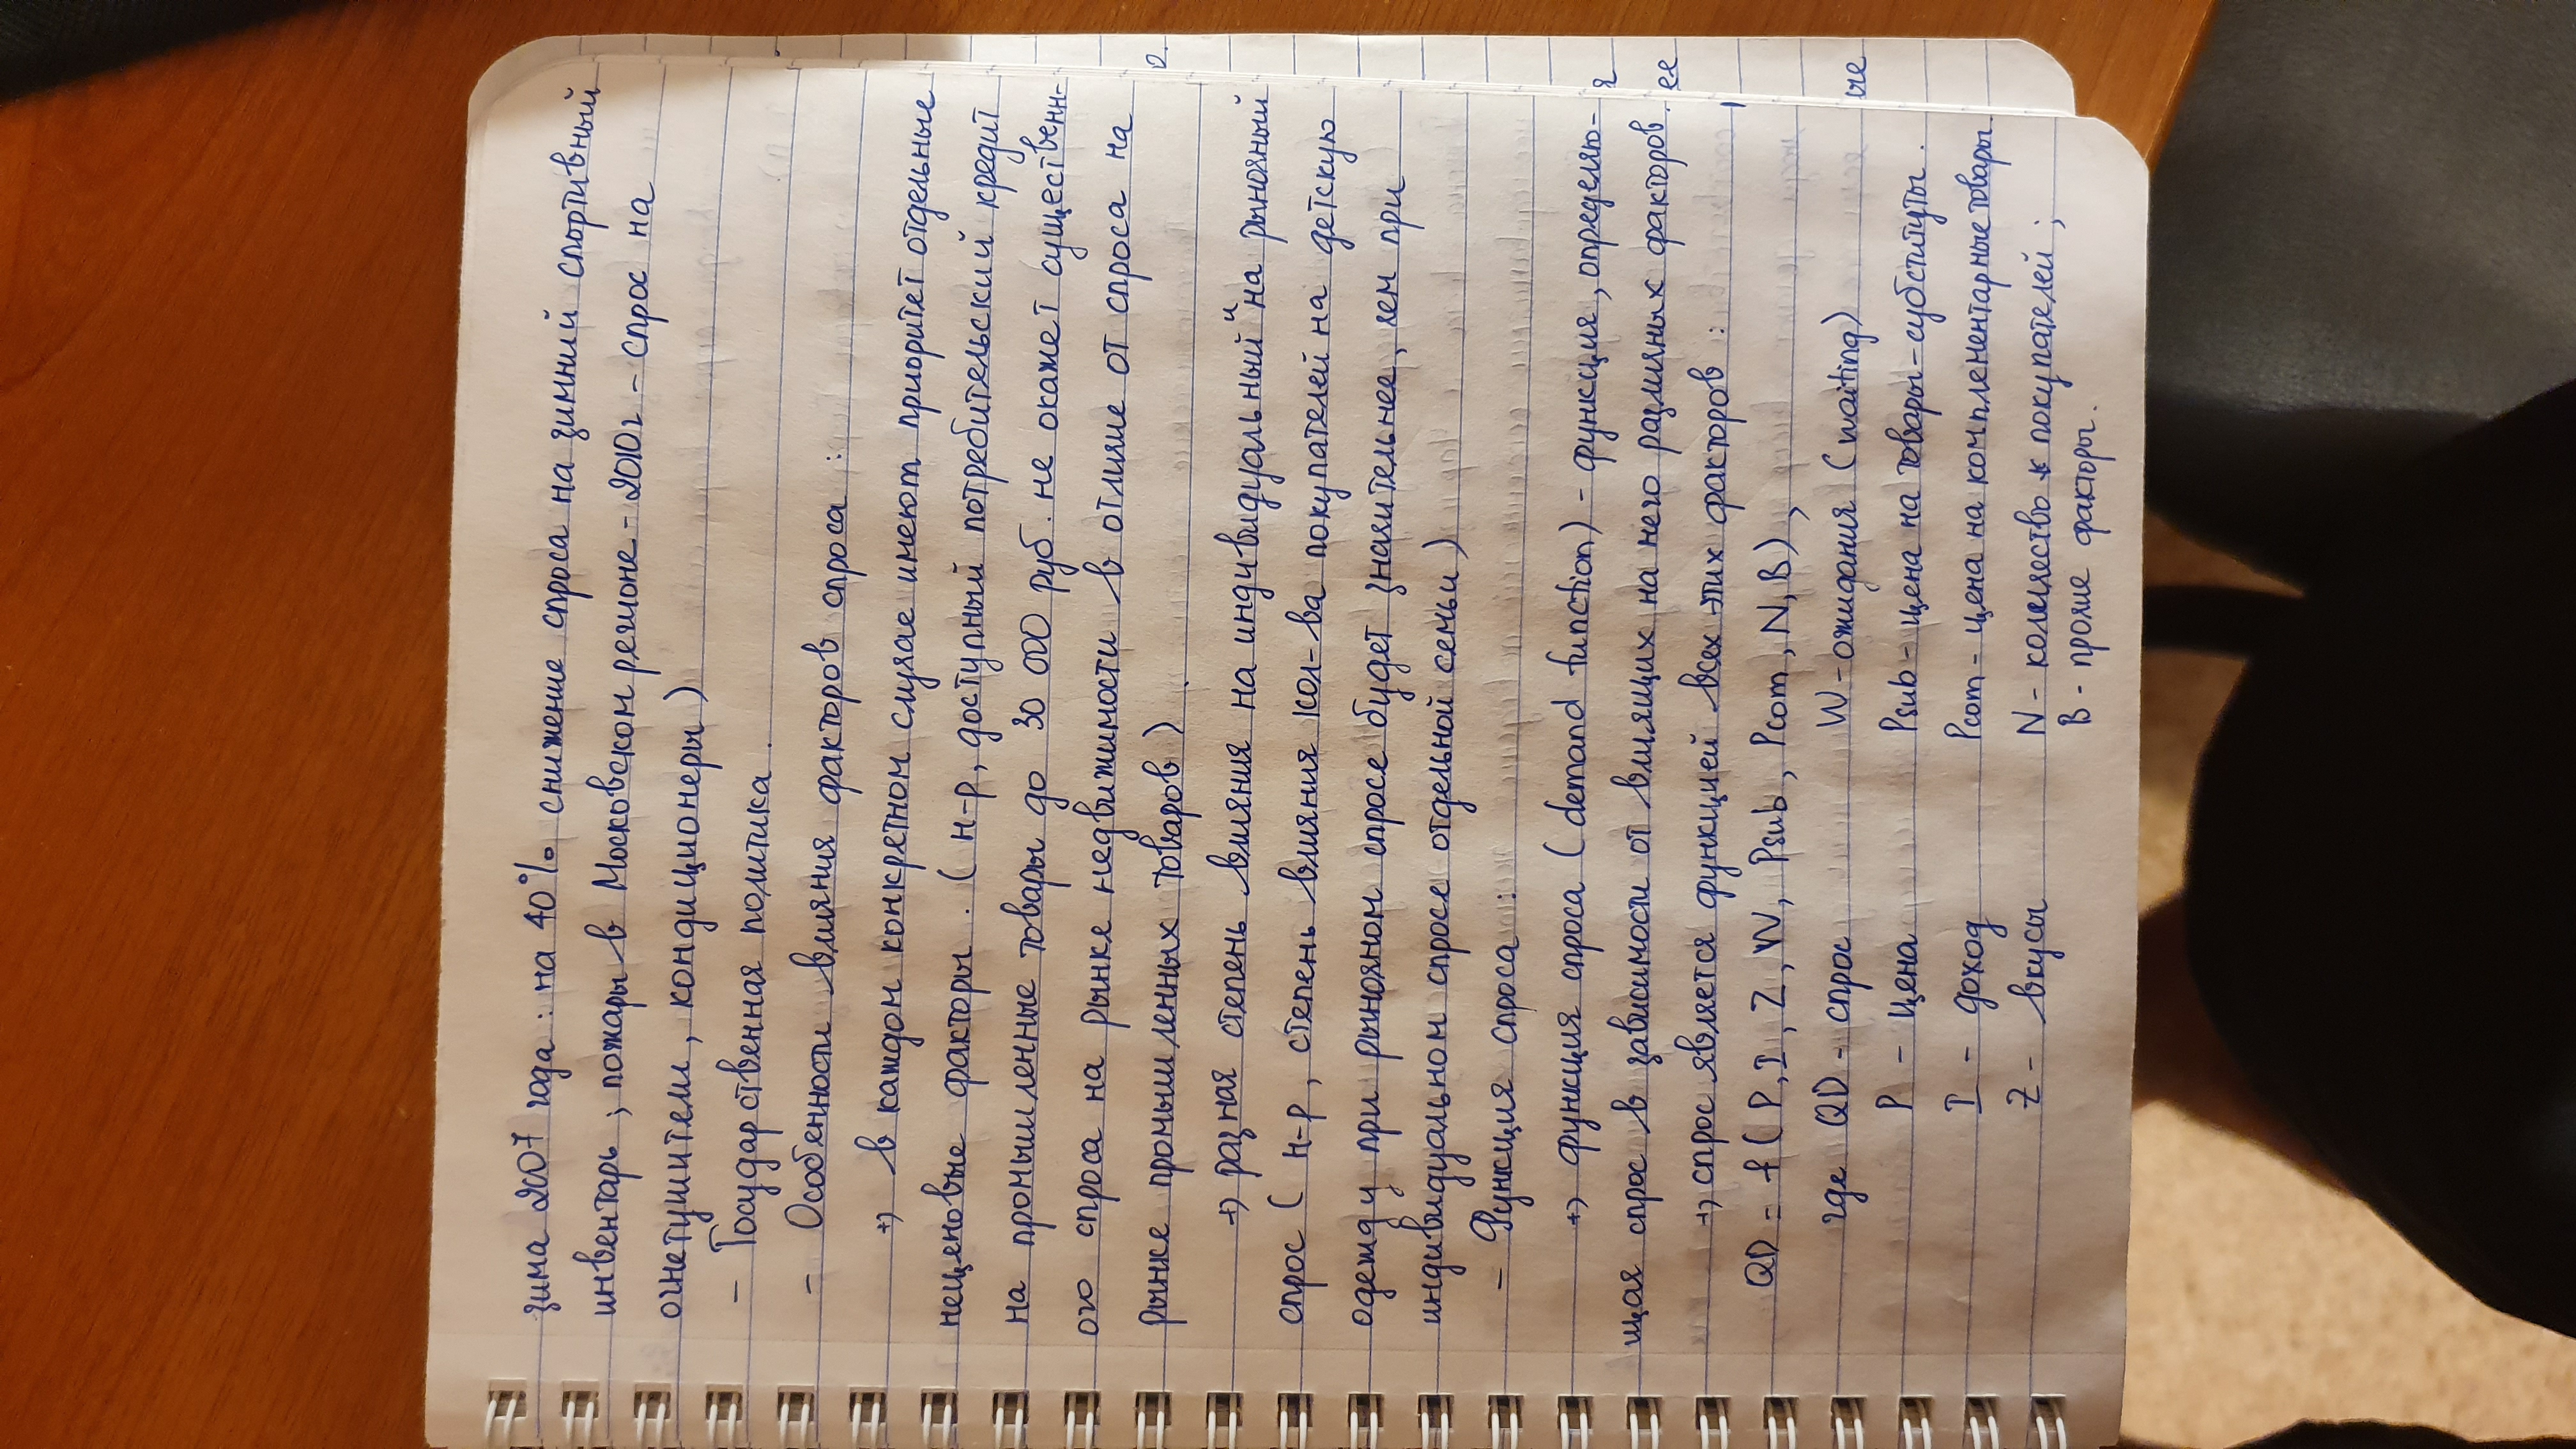 зима 2007 года : на 40% снижение спроса на зимний спортивный
инвентарь ; пожары в Московском регионе - 2010г - спрос на
огнетушители, кондиционеры)
- Государственная политика.
- Особенности влияния факторов спроса :
→ в каждом конкретном случае имеют приоритет отдельные
неценовые факторы. ( н-р, доступный потребительский кредит
на промышленные товары до 30 000 руб. не окажет существенн-
ого спроса на рынке недвижимости в отличие от спроса на
рынке промышленных товаров).
→ разная степень влияния на индивидуальный и на рыночный
спрос ( н-р, степень влияния кол-ва покупателей на детскую
одежду при рыночном спросе будет значительнее, чем при
индивидуальном спросе отдельной семьи)
- Функция спроса :
→ функция спроса (demand function) - функция, определяю-
щая спрос в зависимости от влиящих на него различных факторов.
→ спрос является функцией всех этих факторов :
QD = f ( P, I, Z, W, Psub, Pcom, N, B),
где QD - спрос W - ожидания (waiting)
P - цена Psub - цена на товары-субституты.
I - доход Pcom - цена на комплементарные товары.
Z - вкусы N - количество покупателей ;
B - прочие факторы.
о.
я
ее
ые